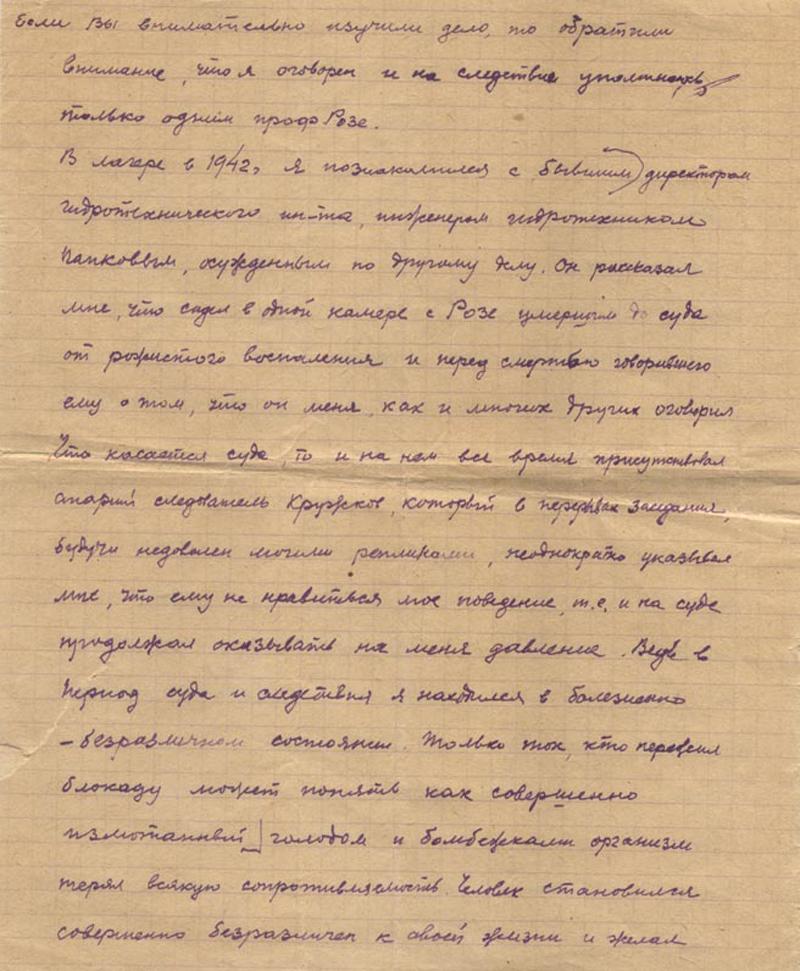 Если Вы внимательно изучили дело, то обратили
внимание, что я оговорен и на следствие
только одним проф Розе.
В лагере в 1942г я познакомился с бывшим директором
гидротехнического ин-та, инженером гидротехником
Папковым, осужденным по другому делу. Он рассказал
мне, что сидел в одной камере с Розе умершим до суда
от рожистого воспаления и перед смертью говорившего
ему о том, что он меня, как и многих других оговорил
Что касается суда, то и на нем все время присутствовал
старший следователь Кружков, который в перерывах заседания,
будучи недоволен моими репликами, неоднократно указывал
мне, что ему не нравиться мое поведение, т.е. и на суде
продолжал оказывать на меня давление. Ведь в
период суда и следствия я находился в болезненно
-безразличном состоянии. Только тот, кто пережил
блокаду может понять как совершенно
измотанный голодом и бомбежками организм
терял всякую сопротивляемость. Человек становился
совершенно безразличен к своей жизни и желал